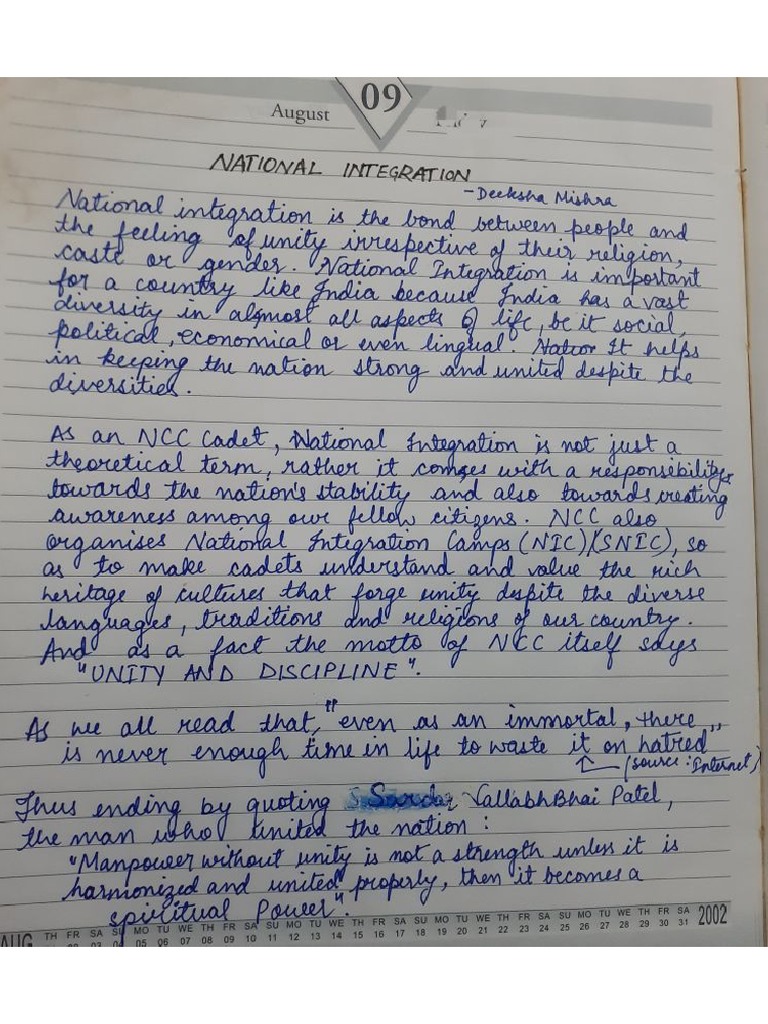 August 09
NATIONAL INTEGRATION
- Deeksha Mishra
National integration is the bond between people and
the feeling of unity irrespective of their religion,
caste or gender. National Integration is important
for a country like India because India has a vast
diversity in almost all aspects of life, be it social,
political, economical or even lingual. It helps
in keeping the nation strong and united despite the
diversities.
As an NCC Cadet, National Integration is not just a
theoretical term, rather it comes with a responsibility
towards the nation's stability and also towards creating
awareness among our fellow citizens. NCC also
organises National Integration Camps (NIC)/(SNIC), so
as to make cadets understand and value the rich
heritage of cultures that forge unity despite the diverse
languages, traditions and religions of our country.
And as a fact the motto of NCC itself says
"UNITY AND DISCIPLINE".
As we all read that, "even as an immortal, there
is never enough time in life to waste it on hatred"
(source: Internet)
Thus ending by quoting Sardar VallabhBhai Patel,
the man who united the nation:
"Manpower without unity is not a strength unless it is
harmonized and united properly, then it becomes a
spiritual Power".
AUG TH FR SA SU MO TU WE TH FR SA SU MO TU WE TH FR SA SU MO TU WE TH FR SA SU MO TU WE TH FR SA 2002
05 06 07 08 09 10 11 12 13 14 15 16 17 18 19 20 21 22 23 24 25 26 27 28 29 30 31